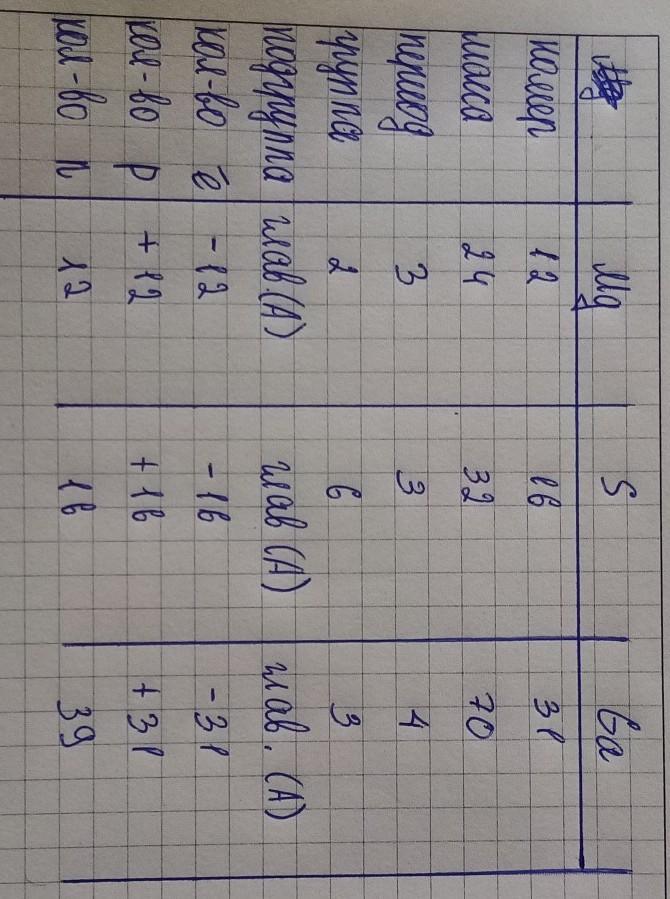 Mg S Ga
номер 12 16 31
масса 24 32 70
период 3 3 4
группа 2 6 3
подгруппа глав.(А) глав (А) глав. (А)
кол-во ē -12 -16 -31
кол-во p +12 +16 +31
кол-во n 12 16 39